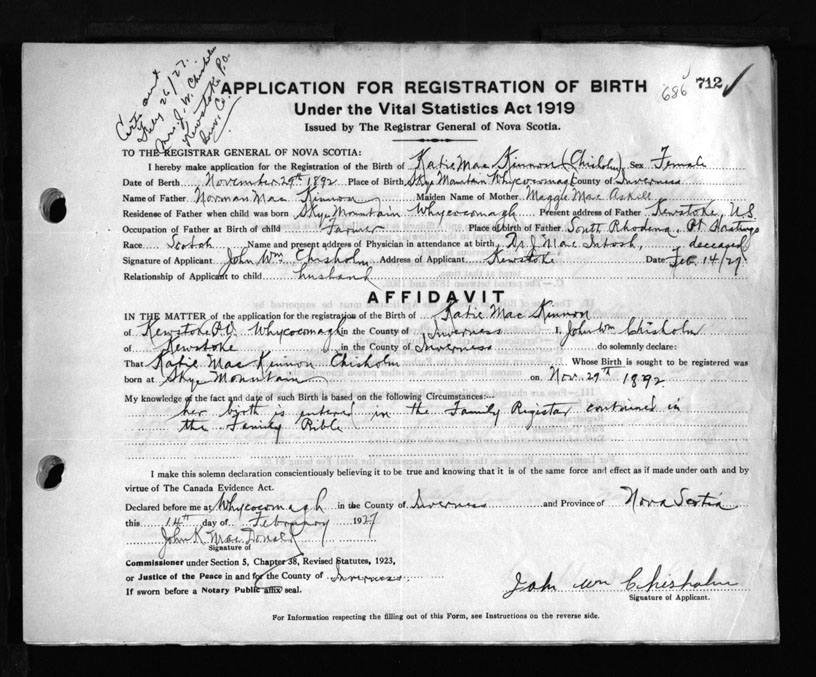 Cert. out
Feby 26/27.
Mrs. J. W. Chisholm
Kewstoke P.O.
Inv. Co.
686 712
APPLICATION FOR REGISTRATION OF BIRTH
Under the Vital Statistics Act 1919
Issued by The Registrar General of Nova Scotia.
TO THE REGISTRAR GENERAL OF NOVA SCOTIA:
I hereby make application for the Registration of the Birth of Katie Mac Kinnon (Chisholm) Sex Female
Date of Birth November 29th 1892 Place of Birth Skye Mountain Whycocomagh County of Inverness
Name of Father Norman Mac Kinnon Maiden Name of Mother Maggie Mac Askill
Residense of Father when child was born Skye Mountain Whycocomagh Present address of Father Kewstoke, N.S.
Occupation of Father at Birth of child Farmer Place of birth of Father South Rhodena, Pt Hastings
Race Scotch Name and present address of Physician in attendance at birth Dr J Mac Intosh, deceased
Signature of Applicant John Wm Chisholm Address of Applicant Kewstoke Date Feb. 14/27.
Relationship of Applicant to child husband
AFFIDAVIT
IN THE MATTER of the application for the registration of the Birth of Katie Mac Kinnon
of Kewstoke P.O. Whycocomagh in the County of Inverness I, John Wm Chisholm
of Kewstoke in the County of Inverness do solemnly declare:
That Katie Mac Kinnon Chisholm Whose Birth is sought to be registered was
born at Skye Mountain on Nov. 29th 1892
My knowledge of the fact and date of such Birth is based on the following Circumstances:—
her birth is entered in the Family Register contained in
the Family Bible
I make this solemn declaration conscientiously believing it to be true and knowing that it is of the same force and effect as if made under oath and by
virtue of The Canada Evidence Act.
Declared before me at Whycocomagh in the County of Inverness and Province of Nova Scotia
this 14th day of February 1927
John K. Mac Donald
Signature of
Commissioner under Section 5, Chapter 38, Revised Statutes, 1923,
or Justice of the Peace in and for the County of Inverness
If sworn before a Notary Public affix seal.
John Wm Chisholm
Signature of Applicant.
For Information respecting the filling out of this Form, see Instructions on the reverse side.